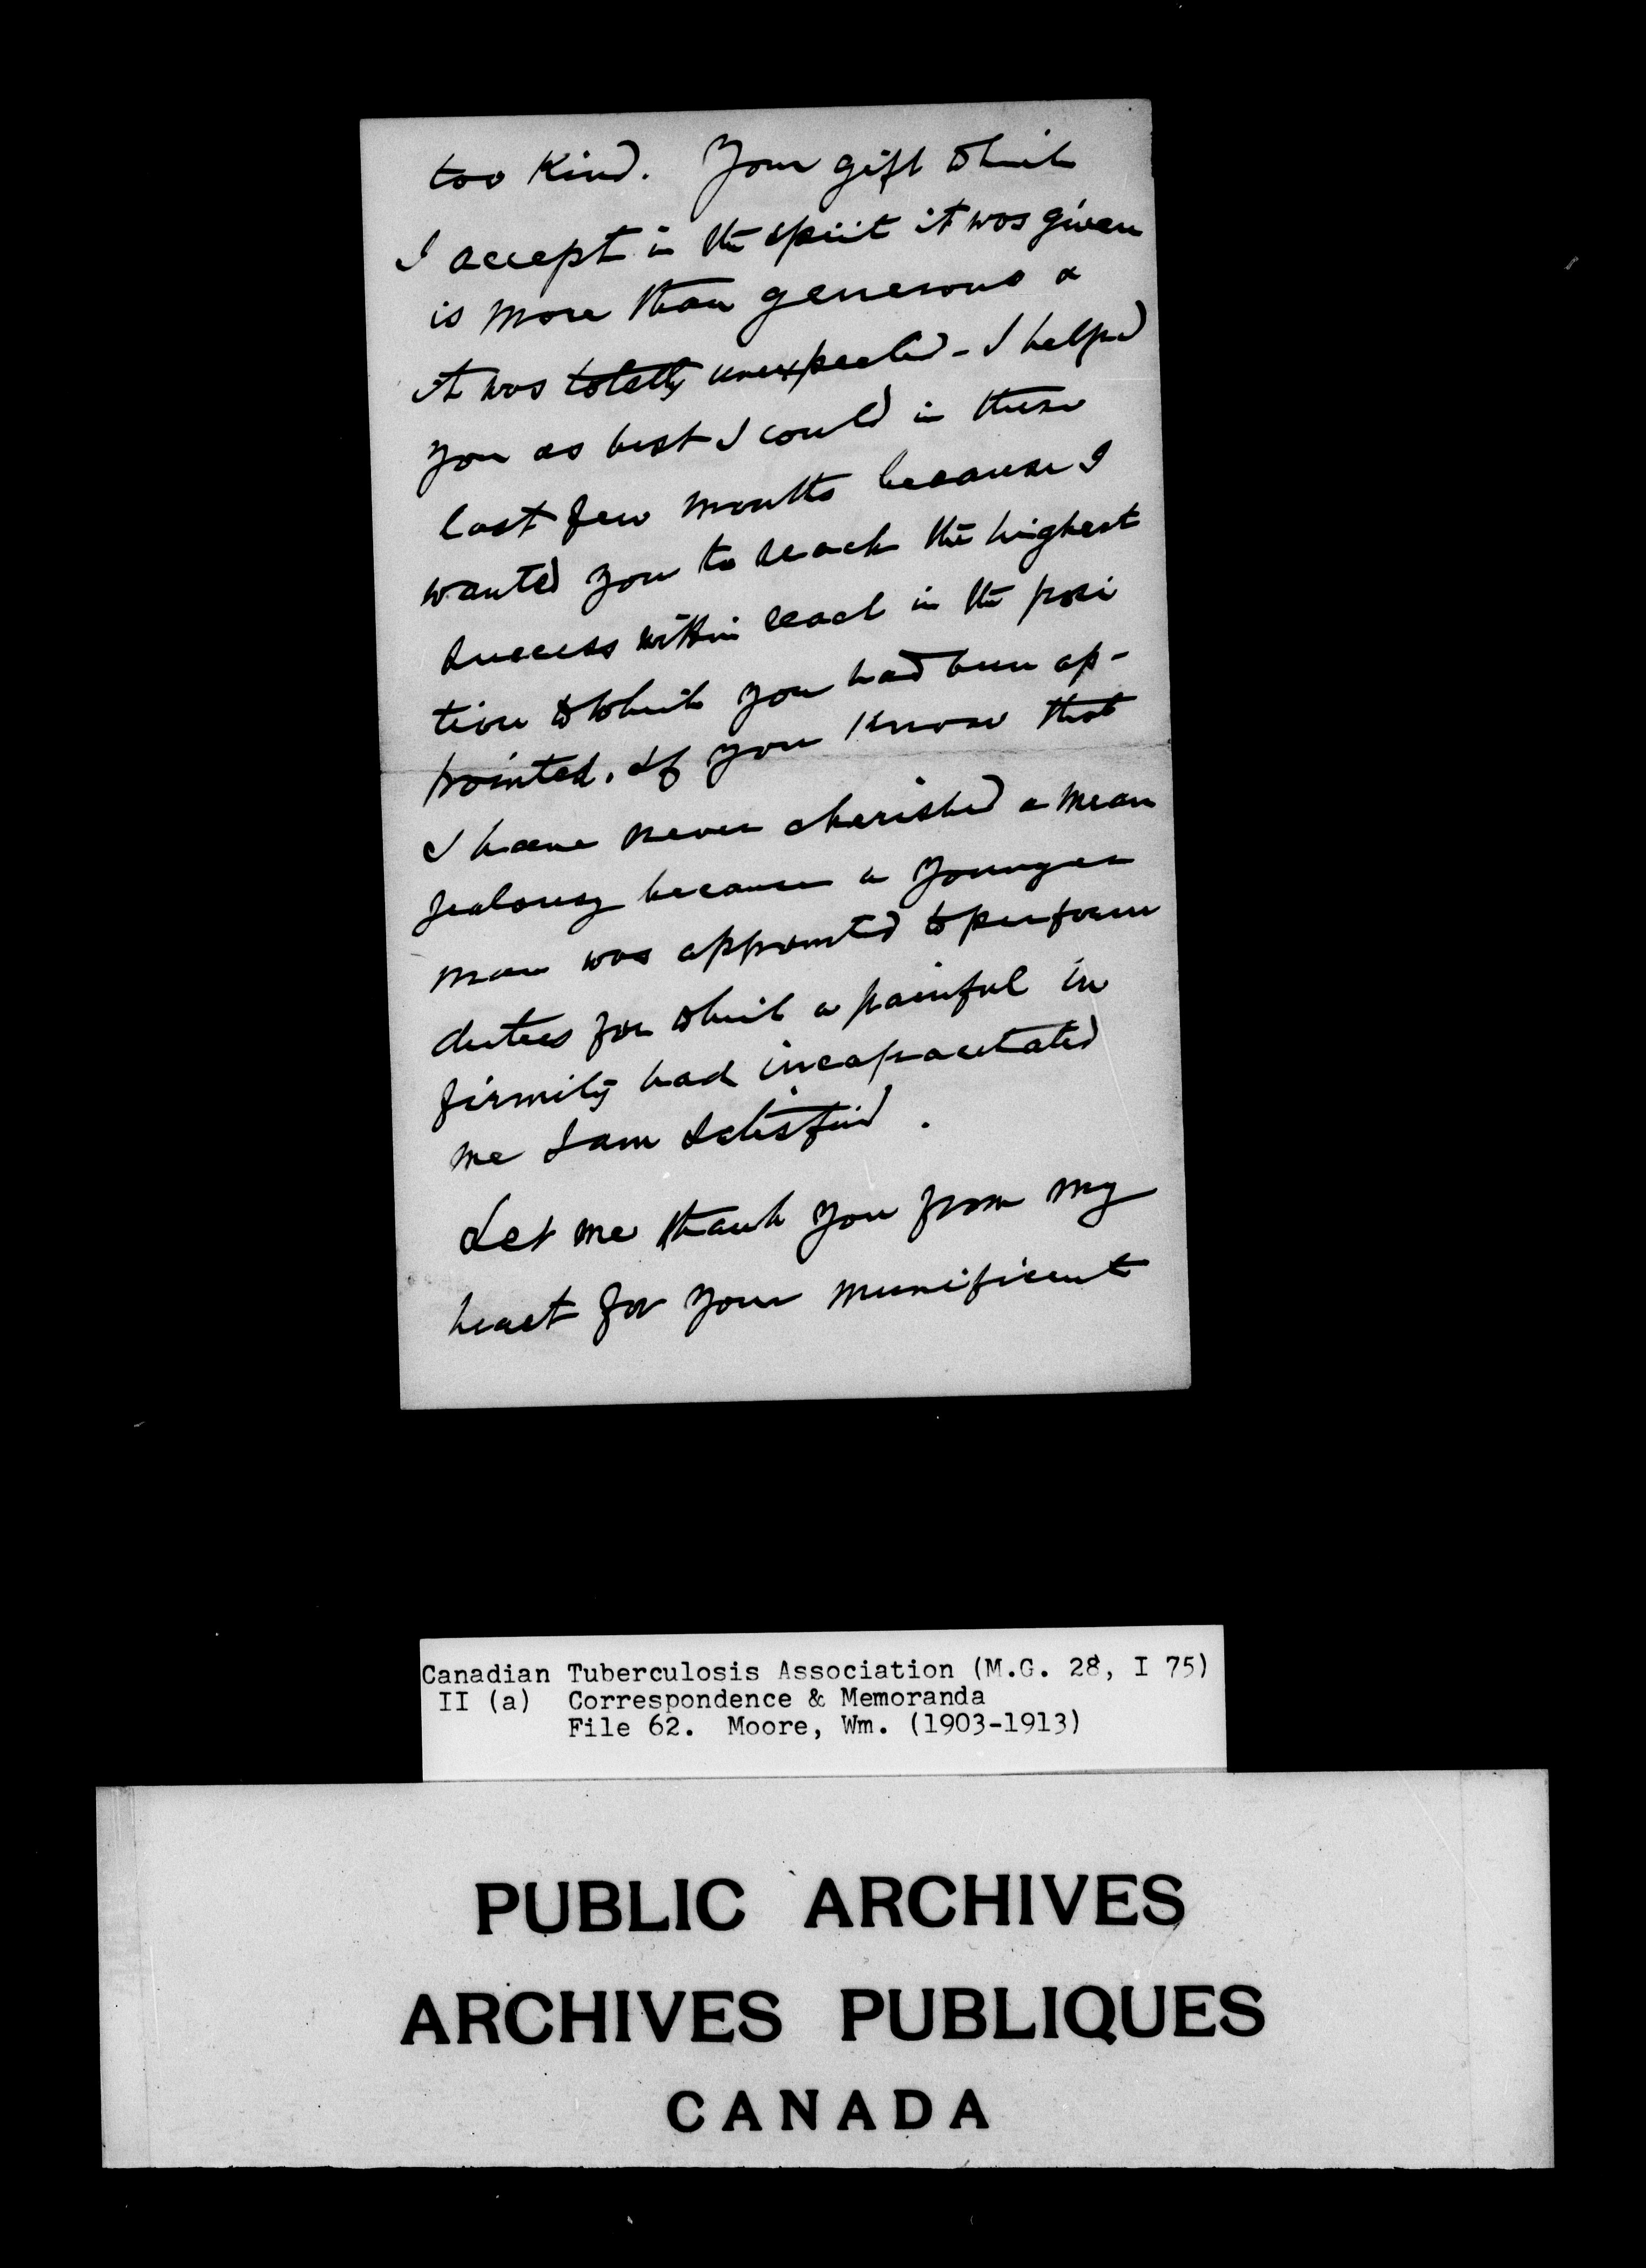 too kind. Your gift which
I accept in the spirit it was given
is more than generous &
it was totally unexpected - I helped
you as best I could in these
last few months because I
wanted you to reach the highest
success within reach in the posi
tion to which you had been ap-
pointed. If you know that
I have never cherished a mean
jealousy because a younger
man was appointed to perform
duties for which a painful in
firmity had incapacitated
me I am satisfied.
Let me thank you from my
heart for your munificent
Canadian Tuberculosis Association (M.G. 28, I 75)
II (a) Correspondence & Memoranda
File 62. Moore, Wm. (1903-1913)
PUBLIC ARCHIVES
ARCHIVES PUBLIQUES
CANADA